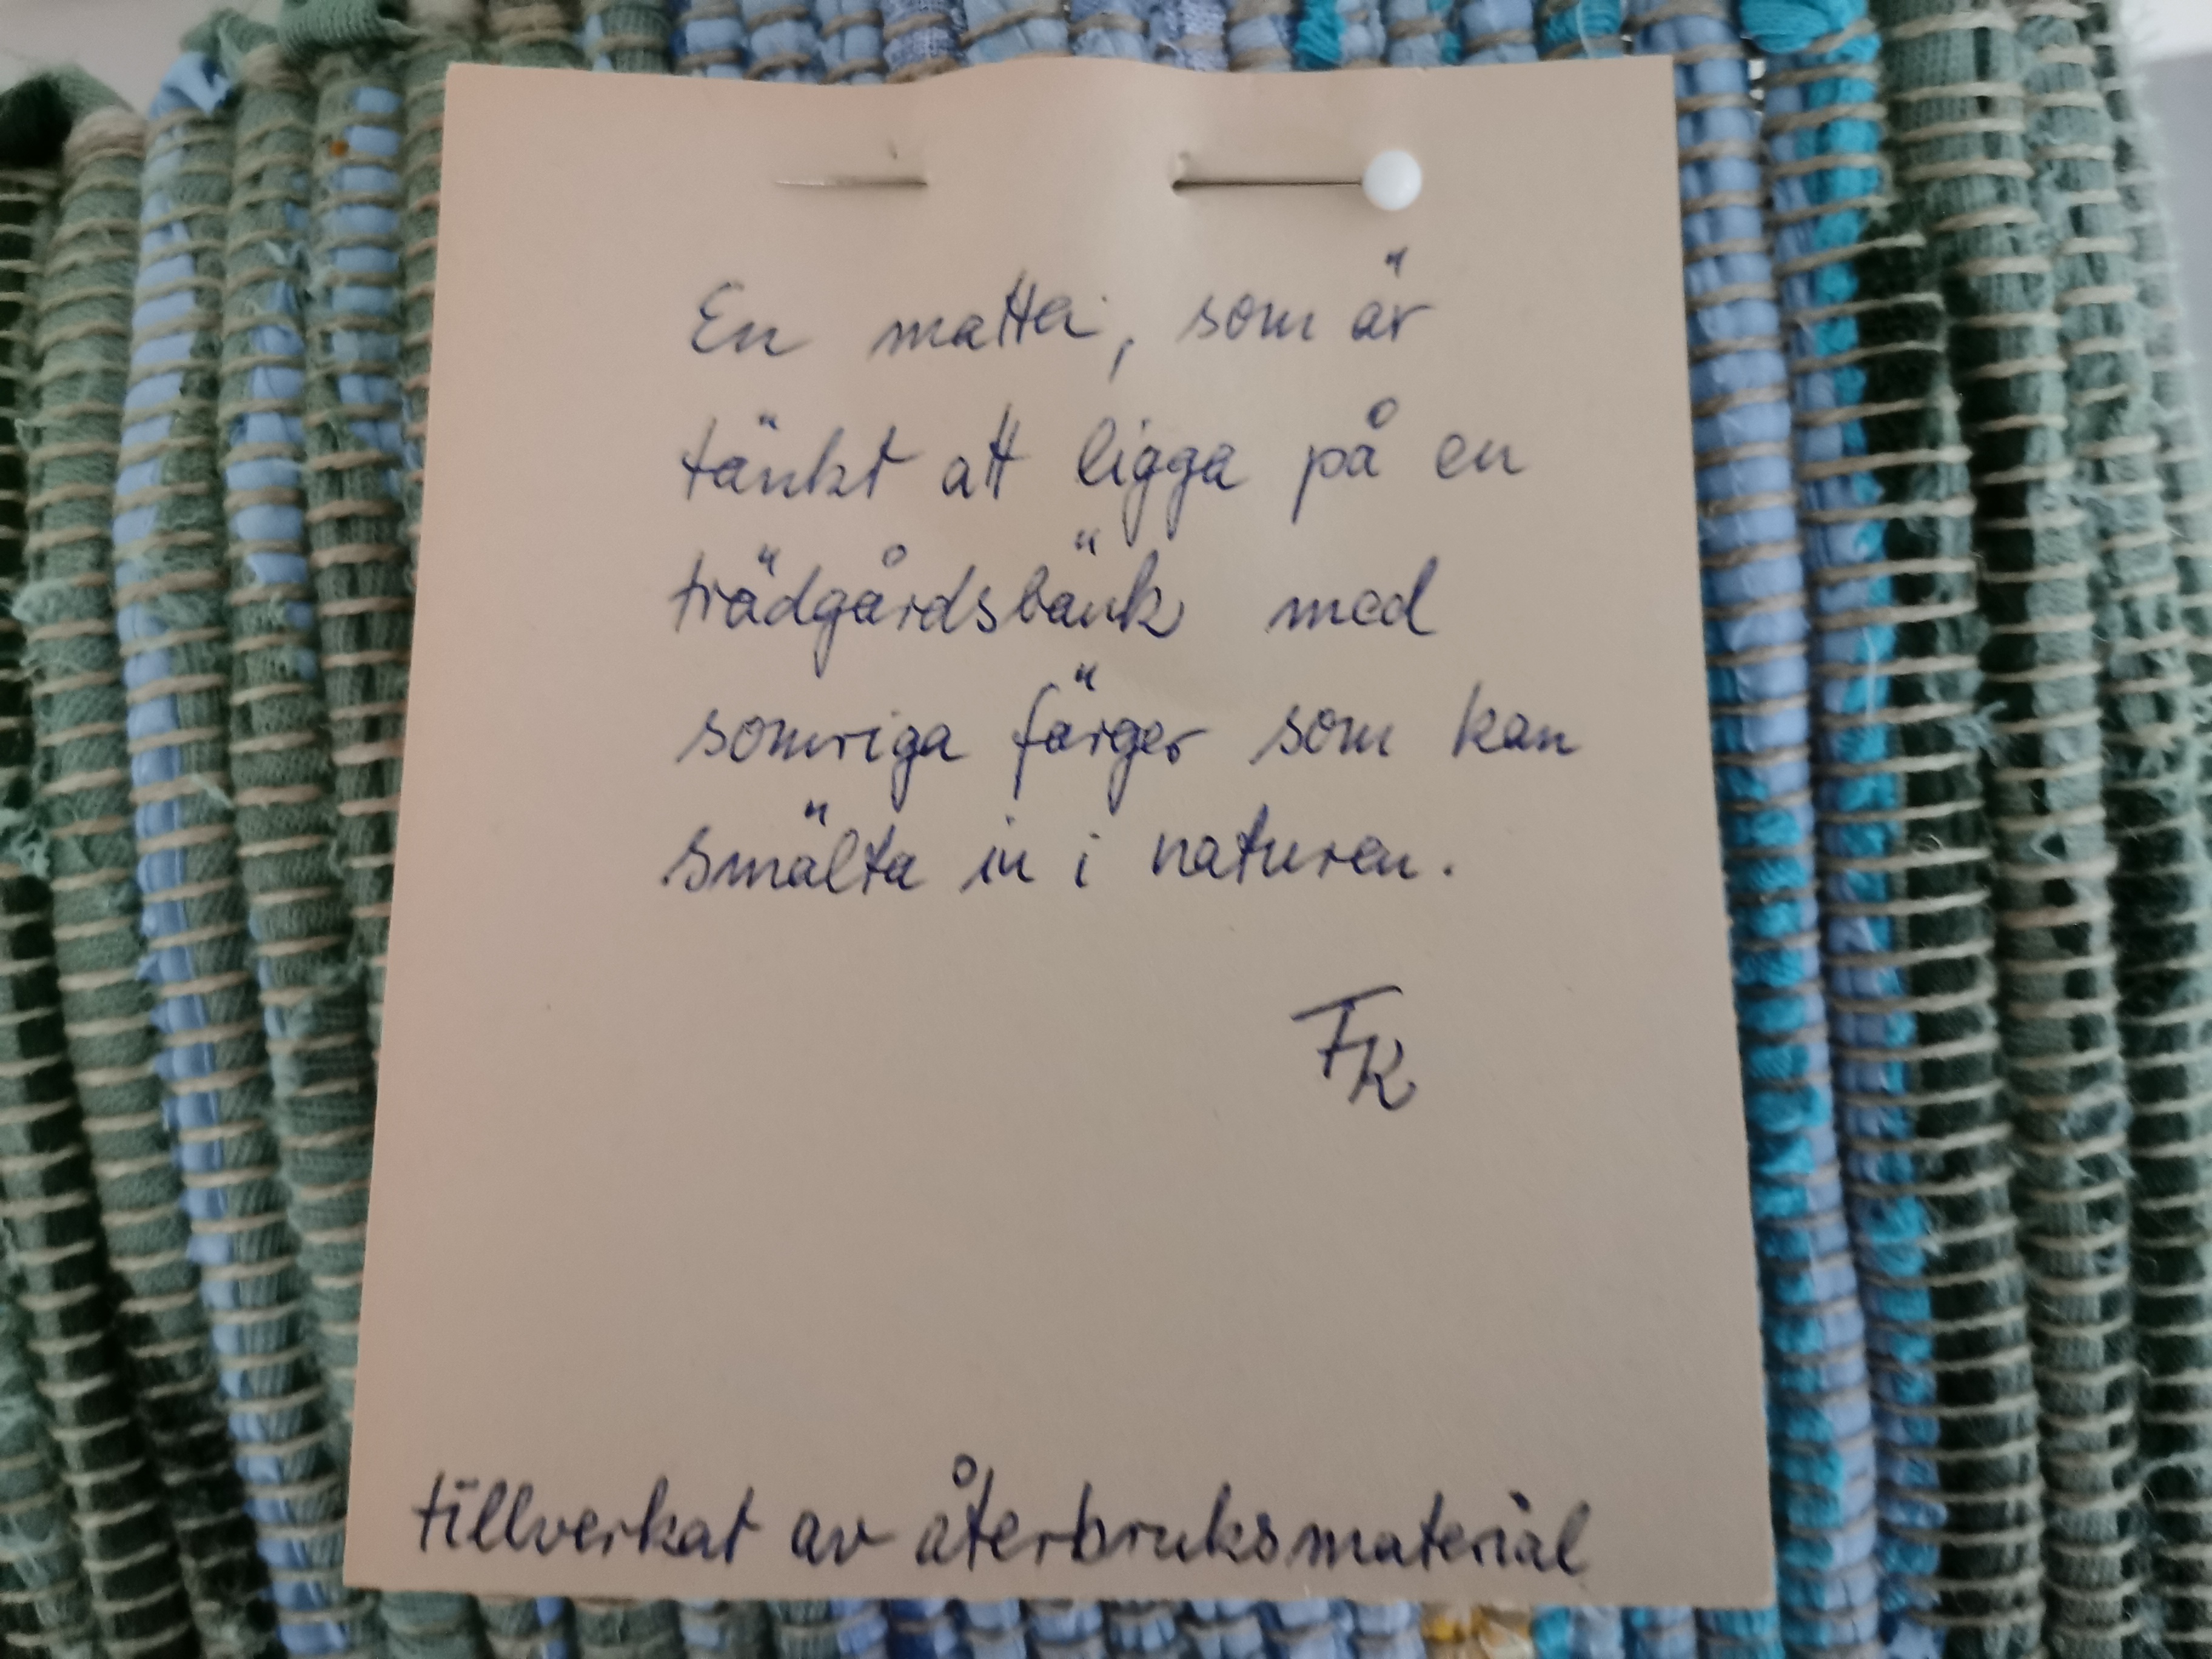 En matta, som är
tänkt att ligga på en
trädgårdsbänk med
somriga färger som kan
smälta in i naturen.
FK
tillverkat av återbruksmaterial